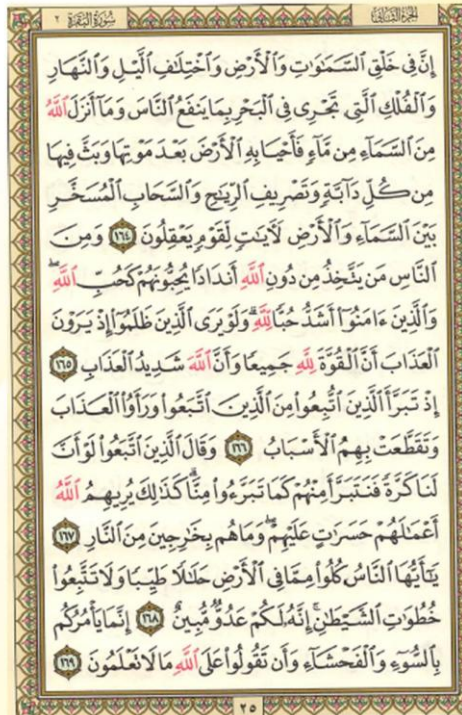 الجزء الثاني
سورة البقرة ٢
إِنَّ فِى خَلْقِ ٱلسَّمَٰوَٰتِ وَٱلْأَرْضِ وَٱخْتِلَٰفِ ٱلَّيْلِ وَٱلنَّهَارِ
وَٱلْفُلْكِ ٱلَّتِى تَجْرِى فِى ٱلْبَحْرِ بِمَا يَنفَعُ ٱلنَّاسَ وَمَآ أَنزَلَ ٱللَّهُ
مِنَ ٱلسَّمَآءِ مِن مَّآءٍ فَأَحْيَا بِهِ ٱلْأَرْضَ بَعْدَ مَوْتِهَا وَبَثَّ فِيهَا
مِن كُلِّ دَآبَّةٍ وَتَصْرِيفِ ٱلرِّيَٰحِ وَٱلسَّحَابِ ٱلْمُسَخَّرِ
بَيْنَ ٱلسَّمَآءِ وَٱلْأَرْضِ لَءَايَٰتٍ لِّقَوْمٍ يَعْقِلُونَ ١٦٤ وَمِنَ
ٱلنَّاسِ مَن يَتَّخِذُ مِن دُونِ ٱللَّهِ أَندَادًا يُحِبُّونَهُمْ كَحُبِّ ٱللَّهِ ۖ
وَٱلَّذِينَ ءَامَنُوٓا۟ أَشَدُّ حُبًّا لِّلَّهِ ۗ وَلَوْ يَرَى ٱلَّذِينَ ظَلَمُوٓا۟ إِذْ يَرَوْنَ
ٱلْعَذَابَ أَنَّ ٱلْقُوَّةَ لِلَّهِ جَمِيعًا وَأَنَّ ٱللَّهَ شَدِيدُ ٱلْعَذَابِ ١٦٥
إِذْ تَبَرَّأَ ٱلَّذِينَ ٱتُّبِعُوا۟ مِنَ ٱلَّذِينَ ٱتَّبَعُوا۟ وَرَأَوُا۟ ٱلْعَذَابَ
وَتَقَطَّعَتْ بِهِمُ ٱلْأَسْبَابُ ١٦٦ وَقَالَ ٱلَّذِينَ ٱتَّبَعُوا۟ لَوْ أَنَّ
لَنَا كَرَّةً فَنَتَبَرَّأَ مِنْهُمْ كَمَا تَبَرَّءُوا۟ مِنَّا ۗ كَذَٰلِكَ يُرِيهِمُ ٱللَّهُ
أَعْمَٰلَهُمْ حَسَرَٰتٍ عَلَيْهِمْ ۖ وَمَا هُم بِخَٰرِجِينَ مِنَ ٱلنَّارِ ١٦٧
يَٰٓأَيُّهَا ٱلنَّاسُ كُلُوا۟ مِمَّا فِى ٱلْأَرْضِ حَلَٰلًا طَيِّبًا وَلَا تَتَّبِعُوا۟
خُطُوَٰتِ ٱلشَّيْطَٰنِ ۚ إِنَّهُۥ لَكُمْ عَدُوٌّ مُّبِينٌ ١٦٨ إِنَّمَا يَأْمُرُكُم
بِٱلسُّوٓءِ وَٱلْفَحْشَآءِ وَأَن تَقُولُوا۟ عَلَى ٱللَّهِ مَا لَا تَعْلَمُونَ ١٦٩
٢٥